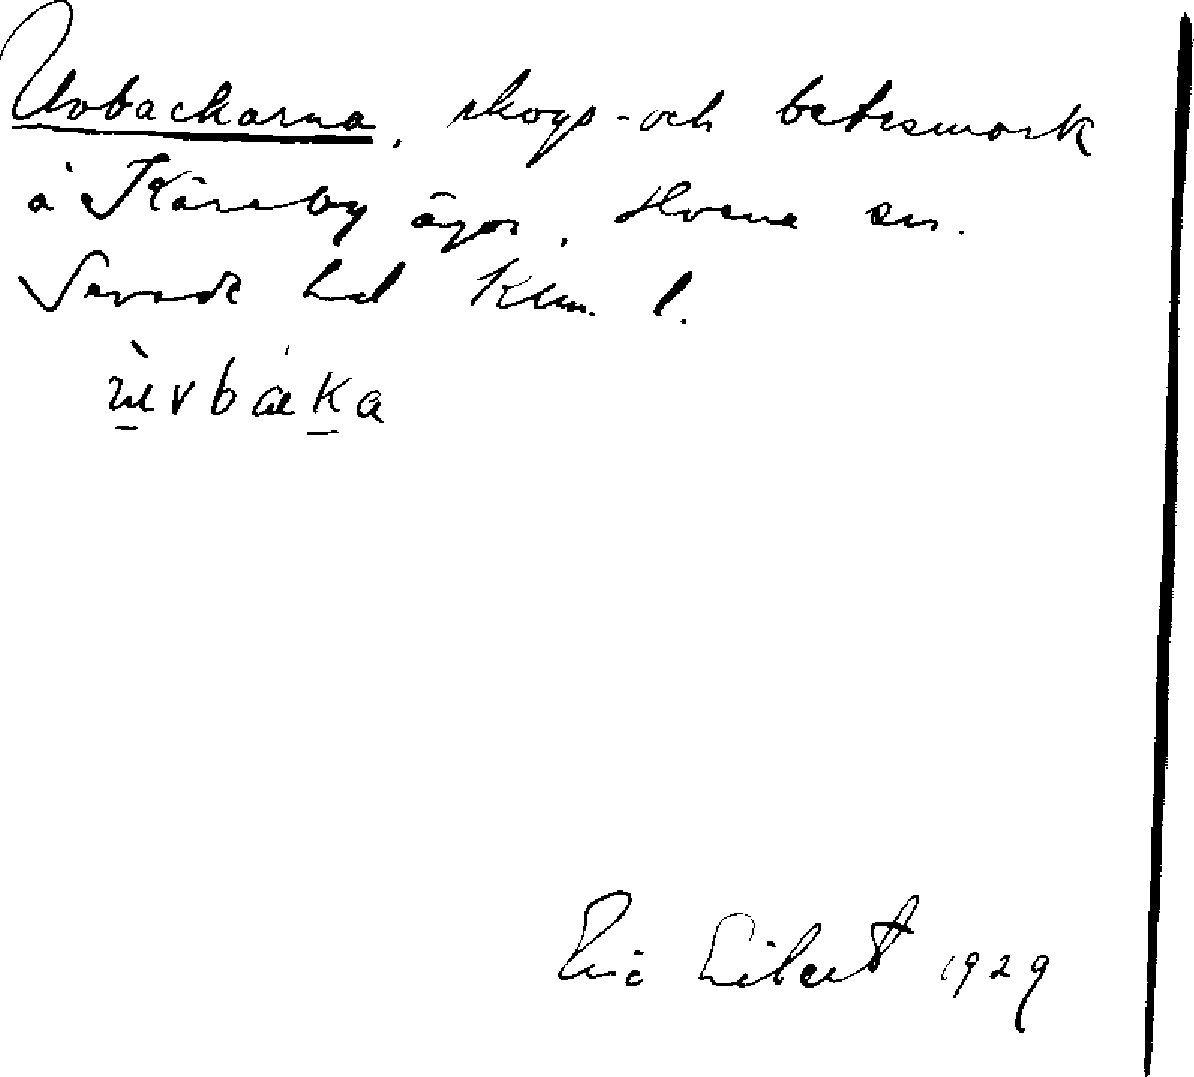 Uvbackarna, skogs- och betesmark
å Kåreby ägor, Hvena sn.
Sevede hd Klm. l.
ùvbáka
Eric Lilert 1929